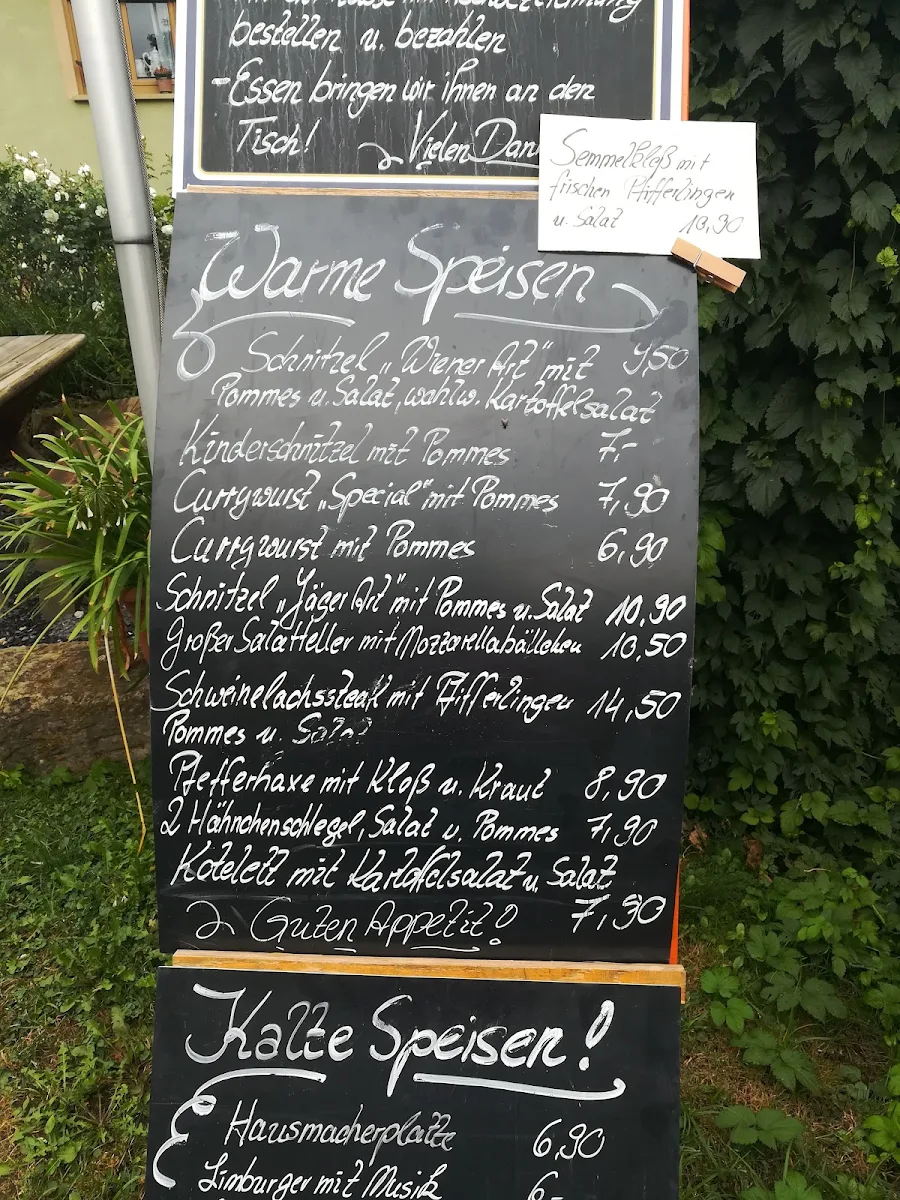 bestellen u. bezahlen
- Essen bringen wir ihnen an den
Tisch! Vielen Dan
Semmelkloß mit
frischen Pfifferlingen
u. Salat 10,90
Warme Speisen
Schnitzel „Wiener Art" mit 9,50
Pommes u. Salat, wahlw. Kartoffelsalat
Kinderschnitzel mit Pommes 7,-
Currywurst „Special" mit Pommes 7,90
Currywurst mit Pommes 6,90
Schnitzel „Jäger Art" mit Pommes u. Salat 10,90
Großer Salatteller mit Mozzarellabällchen 10,50
Schweinelachssteak mit Pfifferlingen 14,50
Pommes u. Salat
Pfefferhaxe mit Kloß u. Kraut 8,90
2 Hähnchenschlegel, Salat u. Pommes 7,90
Kotelett mit Kartoffelsalat u. Salat
7,90
Guten Appetit!
Kalte Speisen!
Hausmacherplatte 6,90
Limburger mit Musik 6,-